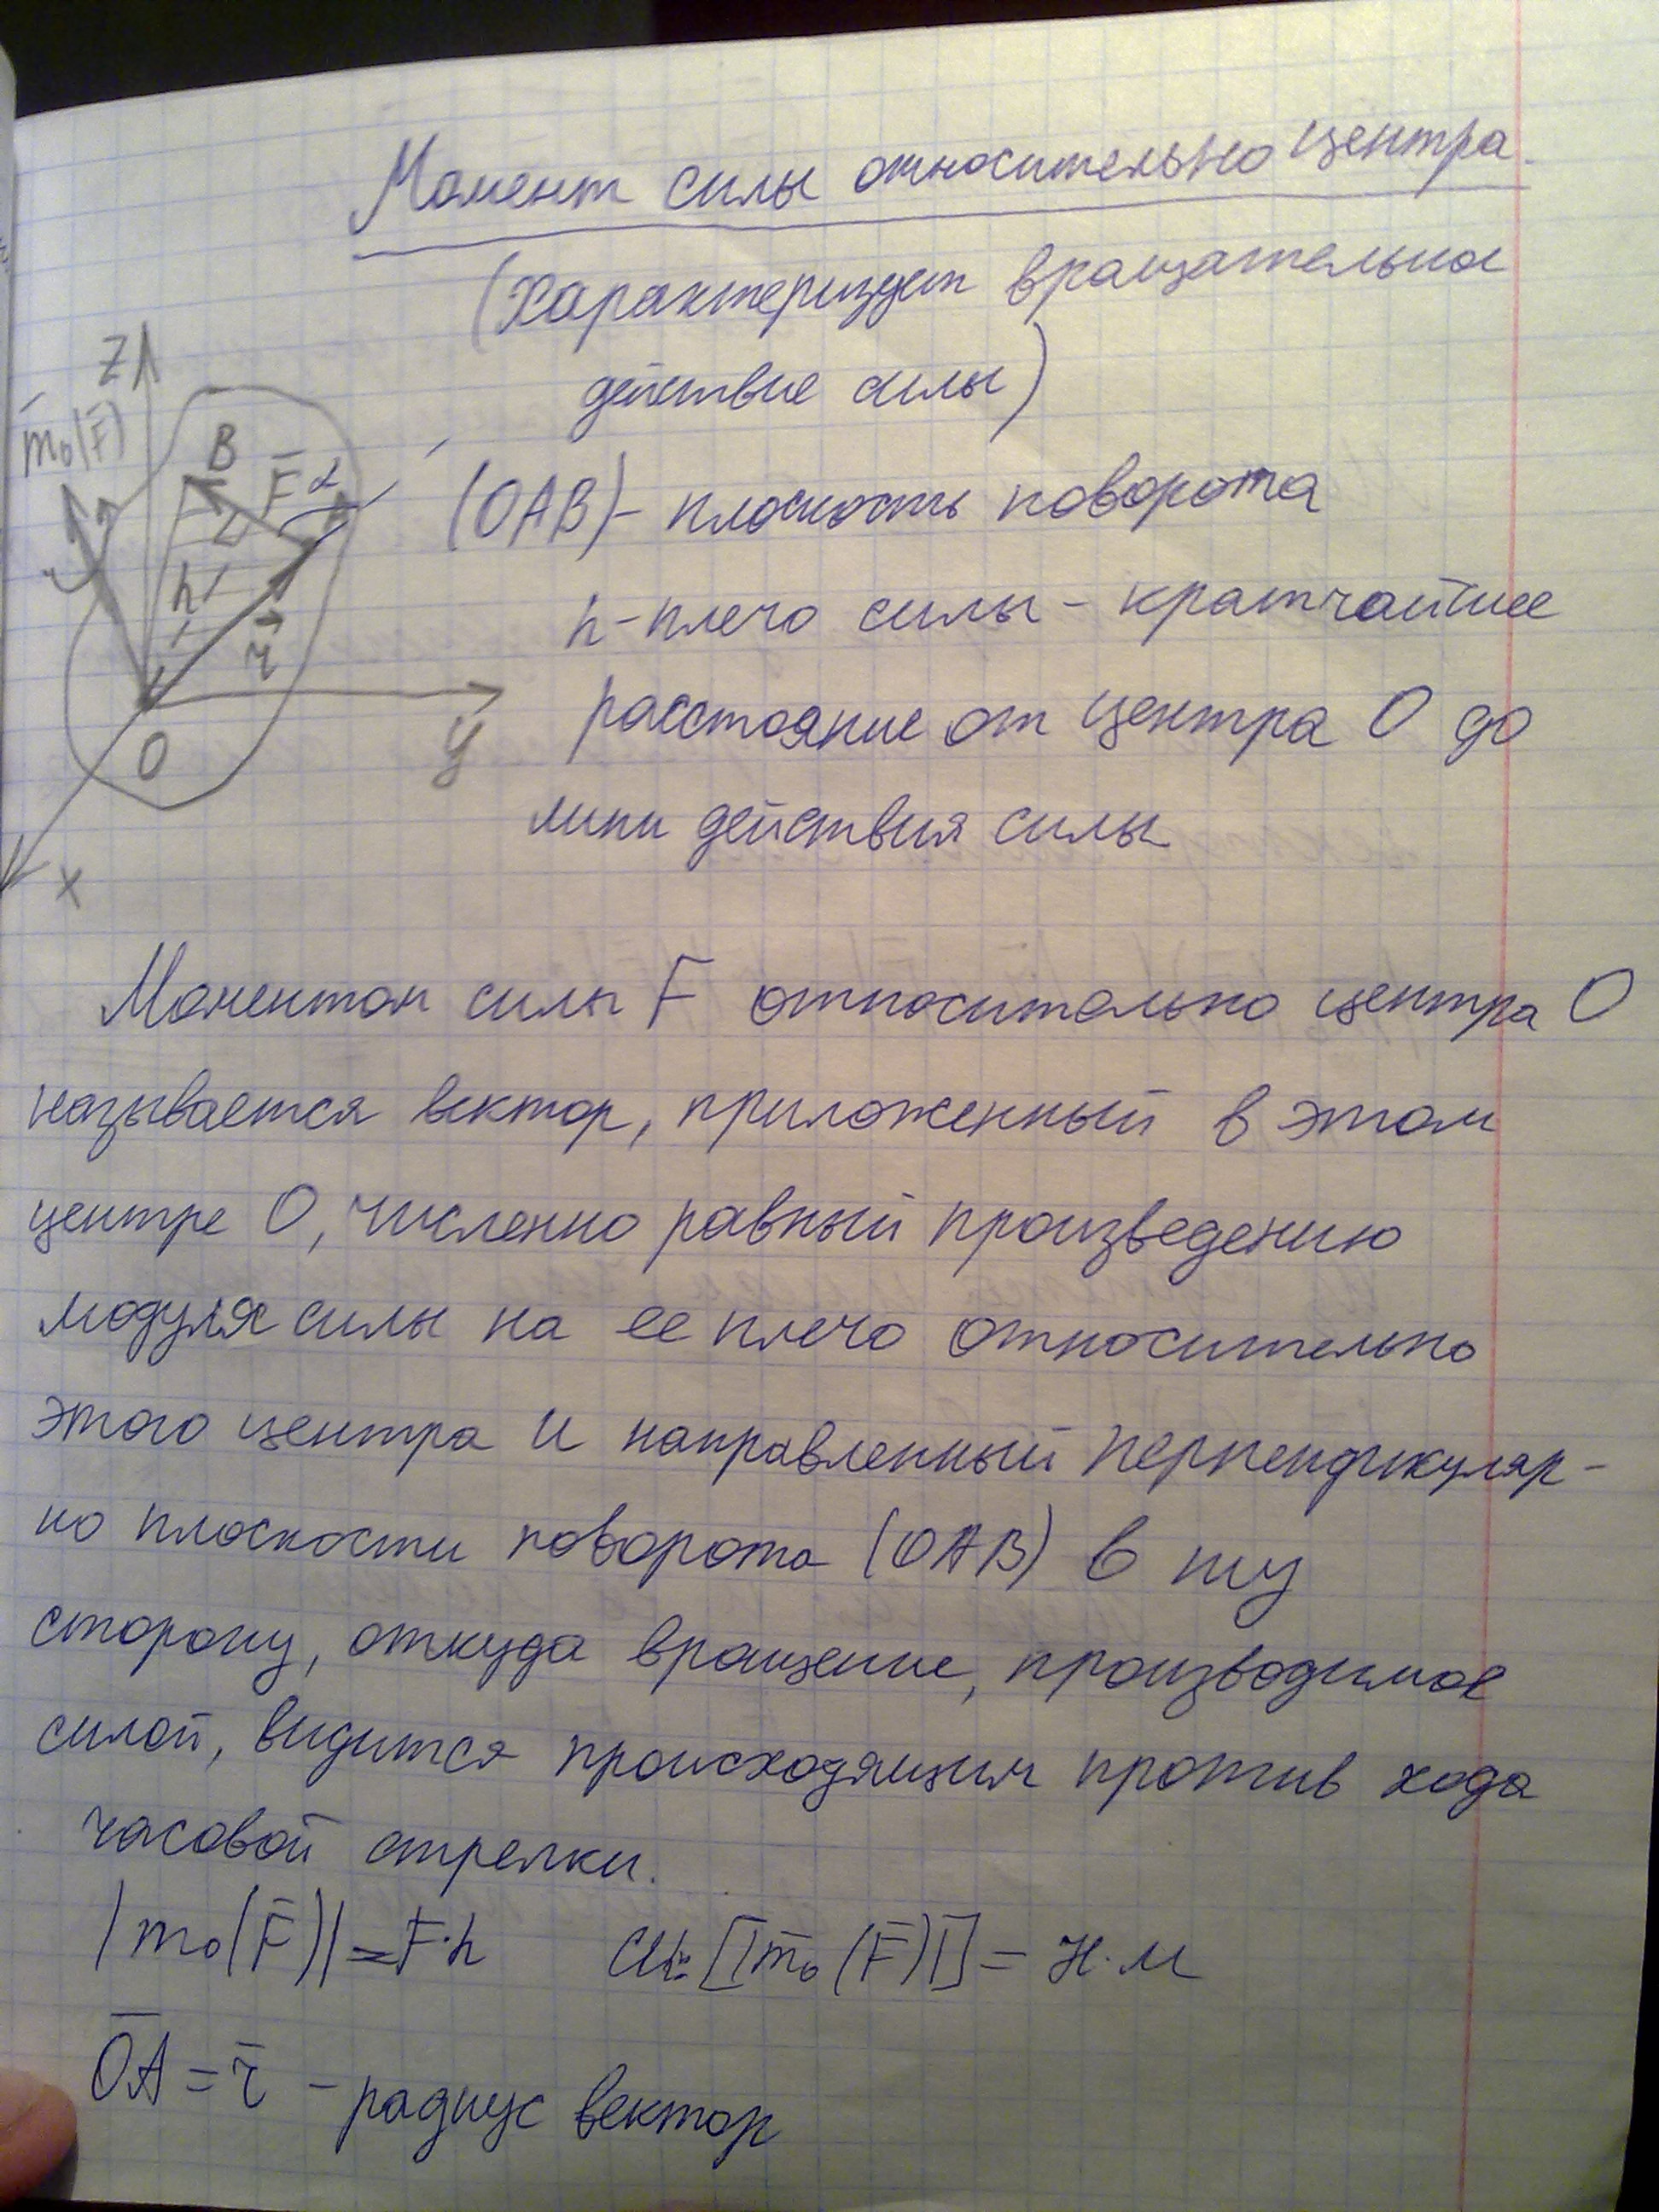 Момент силы относительно центра
(Характеризует вращательное
действие силы)
Z
m̄₀(F̄)
B
F̄
α
h
r̄
O
y
x
(OAB) - плоскость поворота
h - плечо силы - кратчайшее
расстояние от центра O до
лини действия силы
Моментом силы F̄ относительно центра O
называется вектор, приложенный в этом
центре O, численно равный произведению
модуля силы на ее плечо относительно
этого центра и направленный перпендикуляр-
но плоскости поворота (OAB) в ту
сторону, откуда вращение, производимое
силой, видится происходящим против хода
часовой стрелки.
|m₀(F̄)| = F·h СИ: [|m̄₀(F̄)|] = Н·м
O̅A̅ = r̄ - радиус вектор